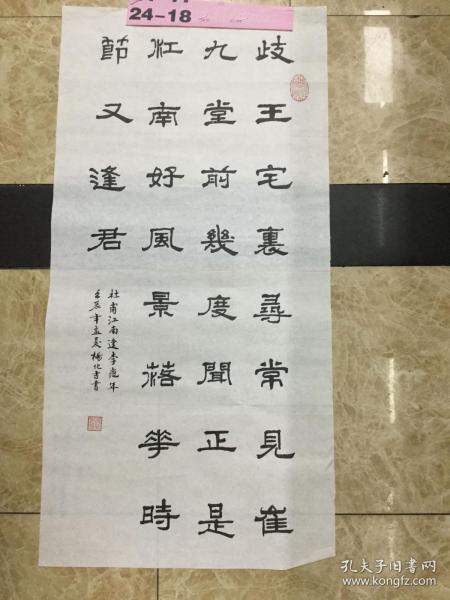 24-18
歧王宅裏尋常見崔
九堂前幾度聞正是
江南好風景落花時
節又逢君
杜甫江南逢李龜年
壬辰年孟夏楊化書書
孔夫子旧书网
www.kongfz.com